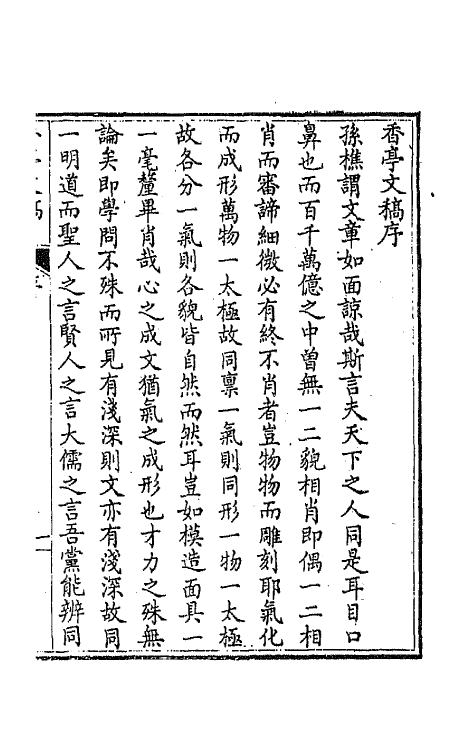 香亭文稿序
孫樵謂文章如面諒哉斯言夫天下之人同是耳目口
鼻也而百千萬億之中曾無一二貌相肖即偶一二相
肖而審諦細微必有終不肖者豈物物而雕刻耶氣化
而成形萬物一太極故同禀一氣則同形一物一太極
故各分一氣則各貌皆自然而然耳豈如模造面具一
一毫釐畢肖哉心之成文猶氣之成形也才力之殊無
論矣即學問不殊而所見有淺深則文亦有淺深故同
一明道而聖人之言賢人之言大儒之言吾黨能辨同